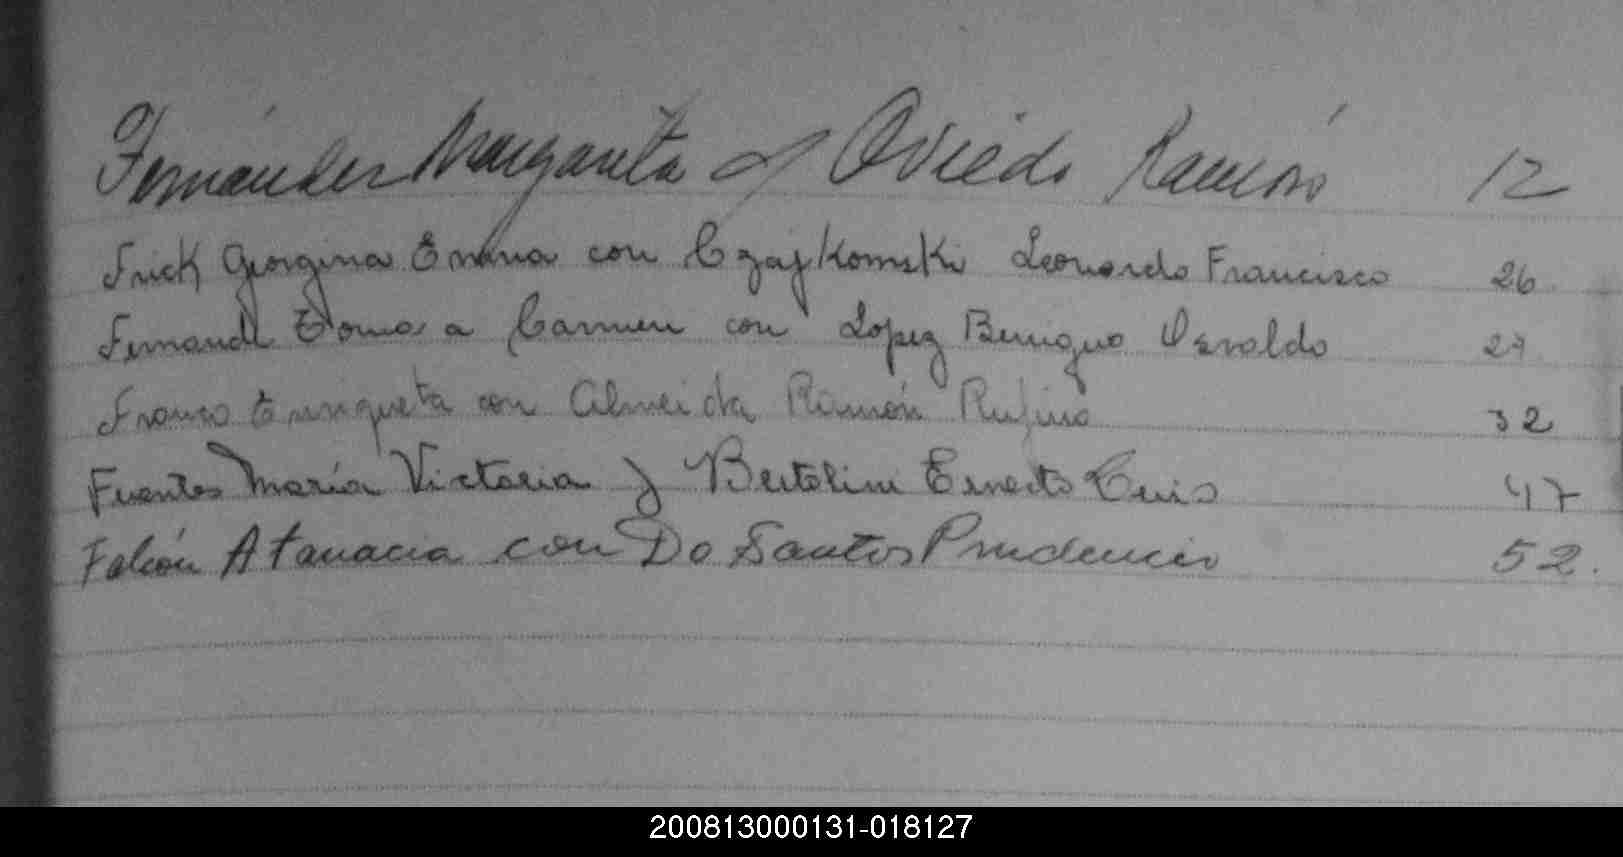 Fernández Margarita y Oviedo Ramón 12
Frick Georgina Emma con Czajkomski Leonardo Francisco 26
Fernand Toma a Carmen con Lopez Benigno Osvaldo 27
Franco Enriqueta con Almeida Ramón Rufino 32
Fuentes María Victoria y Bertolini Ernesto Luis 47
Falcón Atanacia con Do Santos Prudencio 52.
200813000131-018127